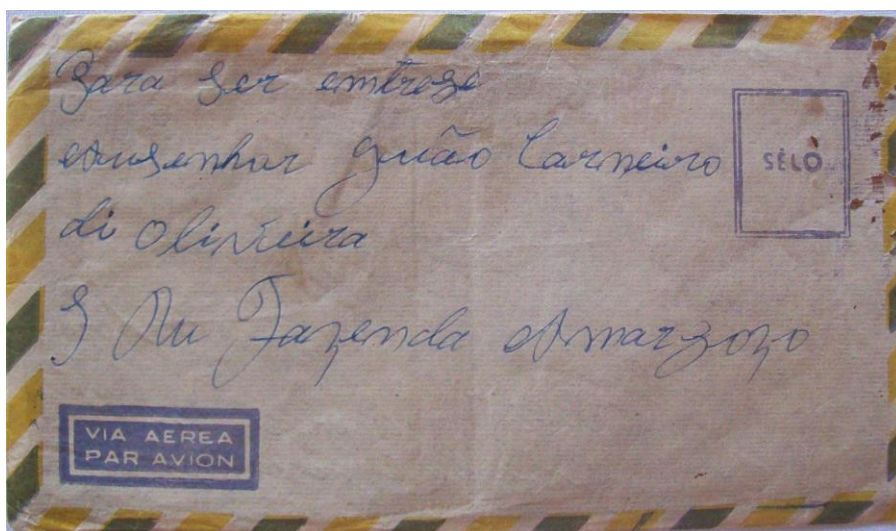 Para ser emtrege
Ausenhor Guão Carneiro
SÊLO
di Oliveira
Fazenda Amargozo
VIA AEREA
PAR AVION